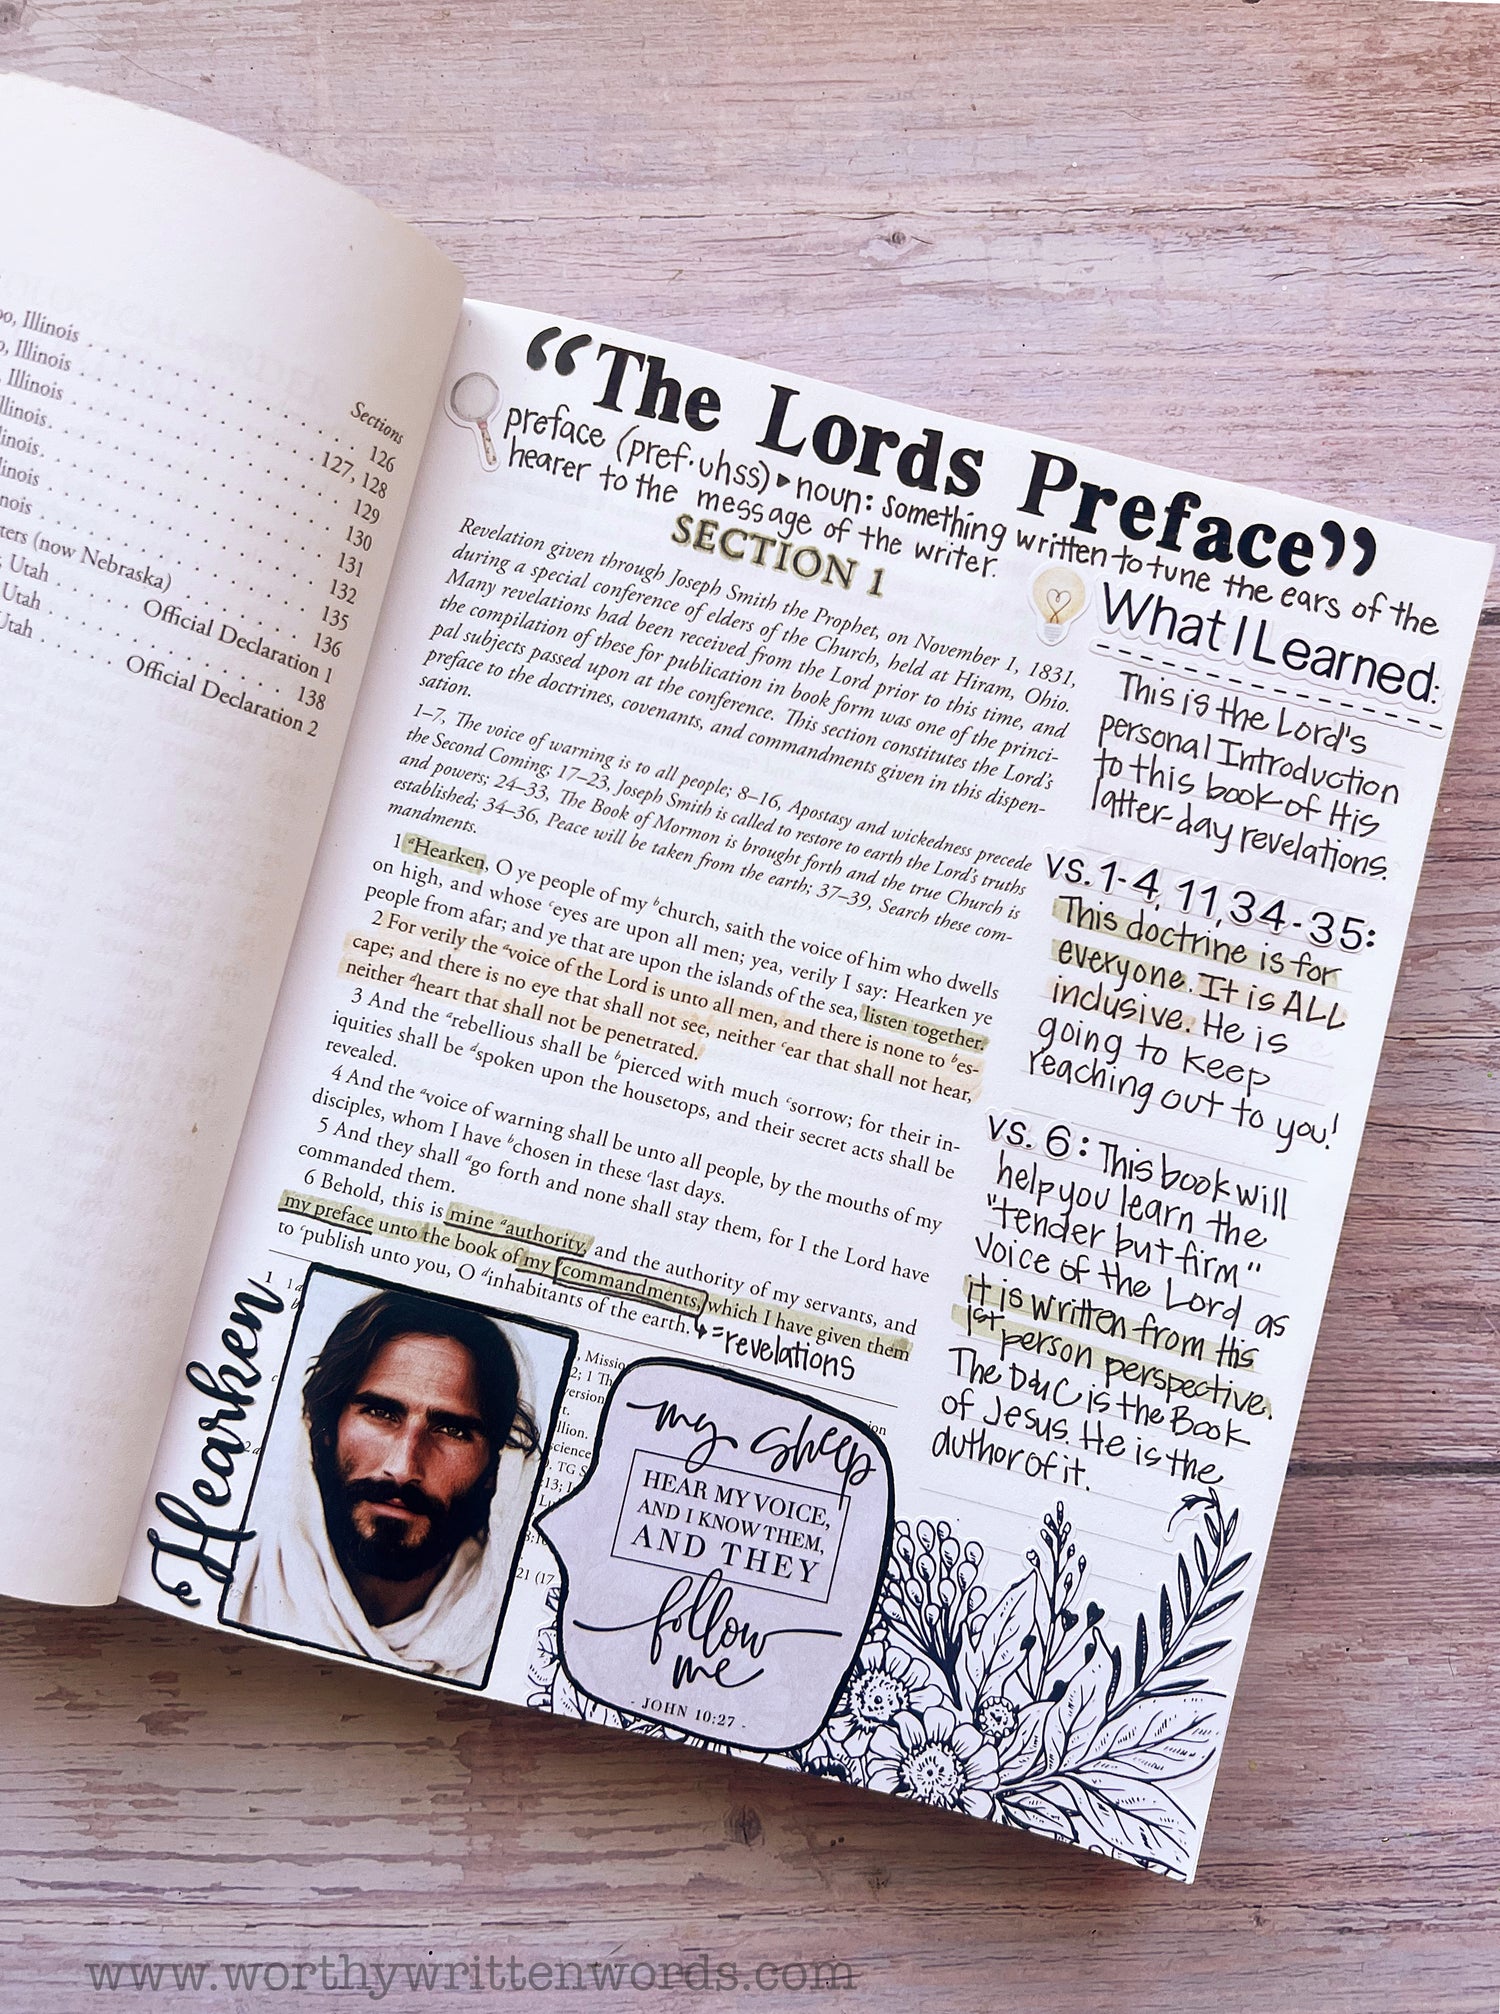 Illinois
Illinois
Illinois
Illinois
(now Nebraska)
Utah
Utah
Utah
Sections
126
127, 128
129
130
131
132
135
136
Official Declaration 1
138
Official Declaration 2
“The Lords Preface”
preface (pref·uhss) ▸ noun: something written to tune the ears of the
hearer to the message of the writer.
SECTION 1
Revelation given through Joseph Smith the Prophet, on November 1, 1831,
during a special conference of elders of the Church, held at Hiram, Ohio.
Many revelations had been received from the Lord prior to this time, and
the compilation of these for publication in book form was one of the princi-
pal subjects passed upon at the conference. This section constitutes the Lord’s
preface to the doctrines, covenants, and commandments given in this dispen-
sation.
1–7, The voice of warning is to all people; 8–16, Apostasy and wickedness precede
the Second Coming; 17–23, Joseph Smith is called to restore to earth the Lord’s truths
and powers; 24–33, The Book of Mormon is brought forth and the true Church is
established; 34–36, Peace will be taken from the earth; 37–39, Search these com-
mandments.
1 aHearken, O ye people of my bchurch, saith the voice of him who dwells
on high, and whose ceyes are upon all men; yea, verily I say: Hearken ye
people from afar; and ye that are upon the islands of the sea, listen together.
2 For verily the avoice of the Lord is unto all men, and there is none to bes-
cape; and there is no eye that shall not see, neither cear that shall not hear,
neither dheart that shall not be penetrated.
3 And the arebellious shall be bpierced with much csorrow; for their in-
iquities shall be dspoken upon the housetops, and their secret acts shall be
revealed.
4 And the avoice of warning shall be unto all people, by the mouths of my
disciples, whom I have bchosen in these clast days.
5 And they shall ago forth and none shall stay them, for I the Lord have
commanded them.
6 Behold, this is mine aauthority, and the authority of my servants, and
my preface unto the book of my commandments, which I have given them
to cpublish unto you, O dinhabitants of the earth.
= revelations
What I Learned:
This is the Lord's
personal Introduction
to this book of His
latter-day revelations.
vs. 1-4, 11, 34-35:
This doctrine is for
everyone. It is ALL
inclusive. He is
going to keep
reaching out to you!
vs. 6: This book will
help you learn the
"tender but firm"
voice of the Lord as
it is written from His
1st person perspective.
The D&C is the Book
of Jesus. He is the
author of it.
Hearken
my sheep
HEAR MY VOICE,
AND I KNOW THEM,
AND THEY
follow
me
- JOHN 10:27 -
www.worthywrittenwords.com